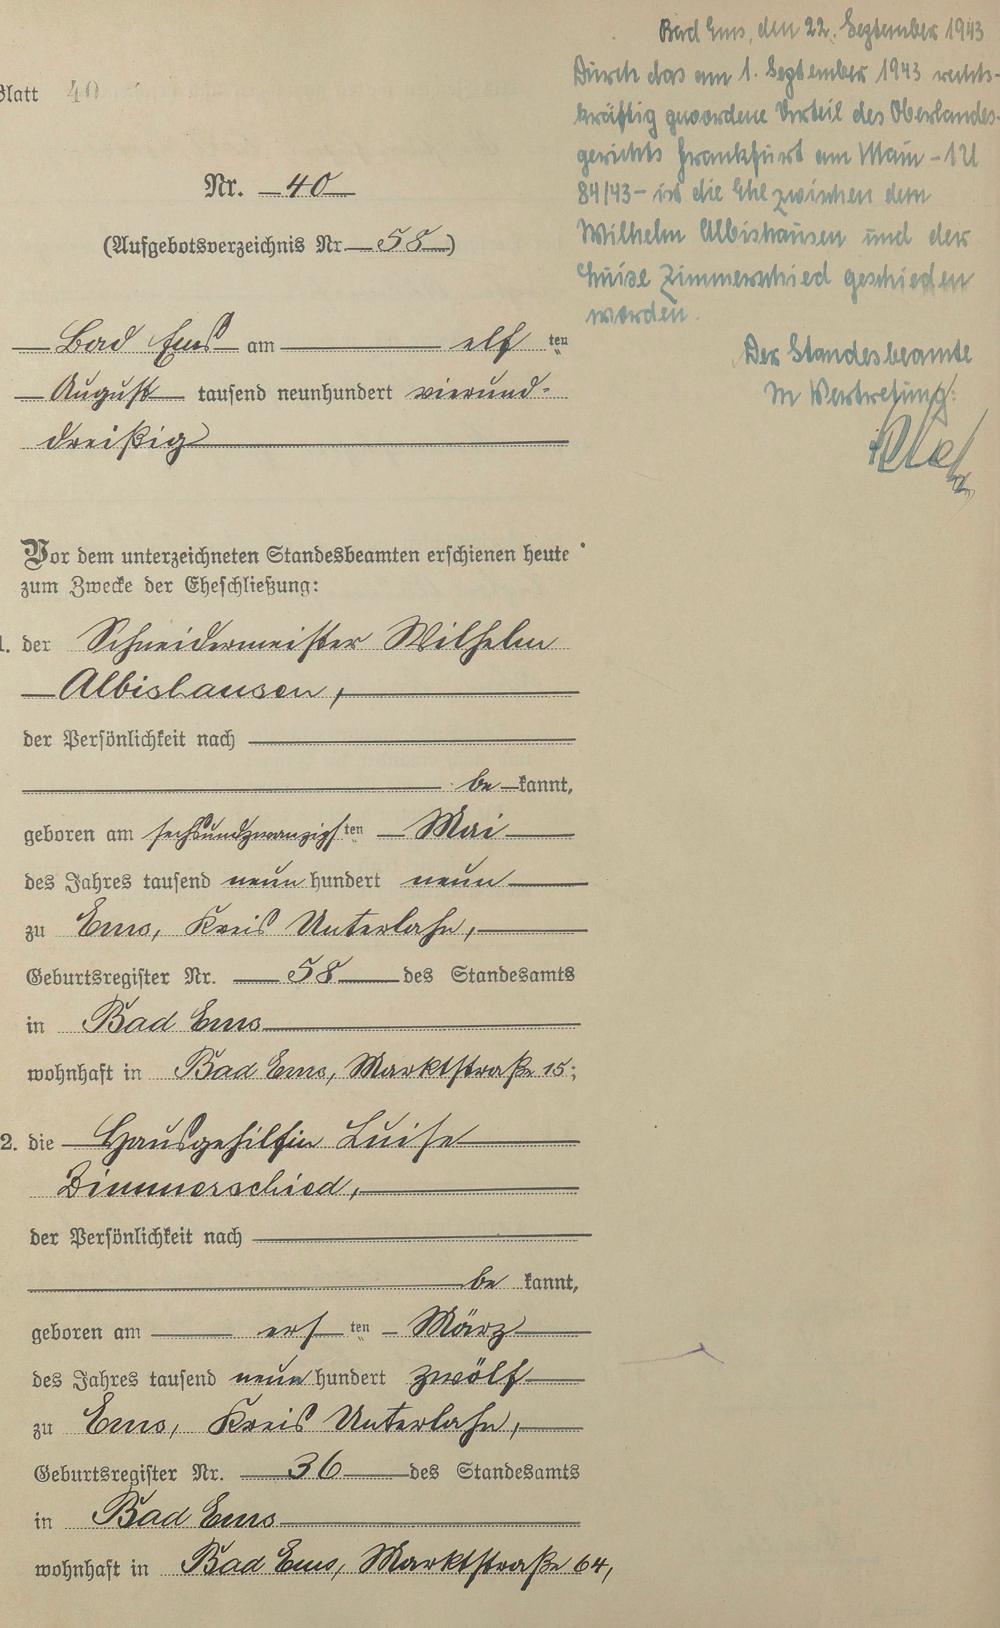 Blatt 40
Nr. 40
(Aufgebotsverzeichnis Nr. 58)
Bad Ems am elf ten
August tausend neunhundert vierund-
dreißig
Vor dem unterzeichneten Standesbeamten erschienen heute
zum Zwecke der Eheschließung:
1. der Schneidermeister Wilhelm
Albishausen,
der Persönlichkeit nach
be kannt,
geboren am sechsundzwanzigs ten Mai
des Jahres tausend neun hundert neun
zu Ems, Kreis Unterlahn,
Geburtsregister Nr. 58 des Standesamts
in Bad Ems
wohnhaft in Bad Ems, Marktstraße 15;
2. die Hausgehilfin Luise
Zimmerschied,
der Persönlichkeit nach
be kannt,
geboren am ers ten März
des Jahres tausend neun hundert zwölf
zu Ems, Kreis Unterlahn,
Geburtsregister Nr. 36 des Standesamts
in Bad Ems
wohnhaft in Bad Ems, Marktstraße 64,
Bad Ems, den 22. September 1943
Durch das am 1. September 1943 rechts-
kräftig gewordene Urteil des Oberlandes-
gerichts Frankfurt am Main - 1 U
84/43 - ist die Ehe zwischen dem
Wilhelm Albishausen und der
Luise Zimmerschied geschieden
worden.
Der Standesbeamte
In Vertretung: